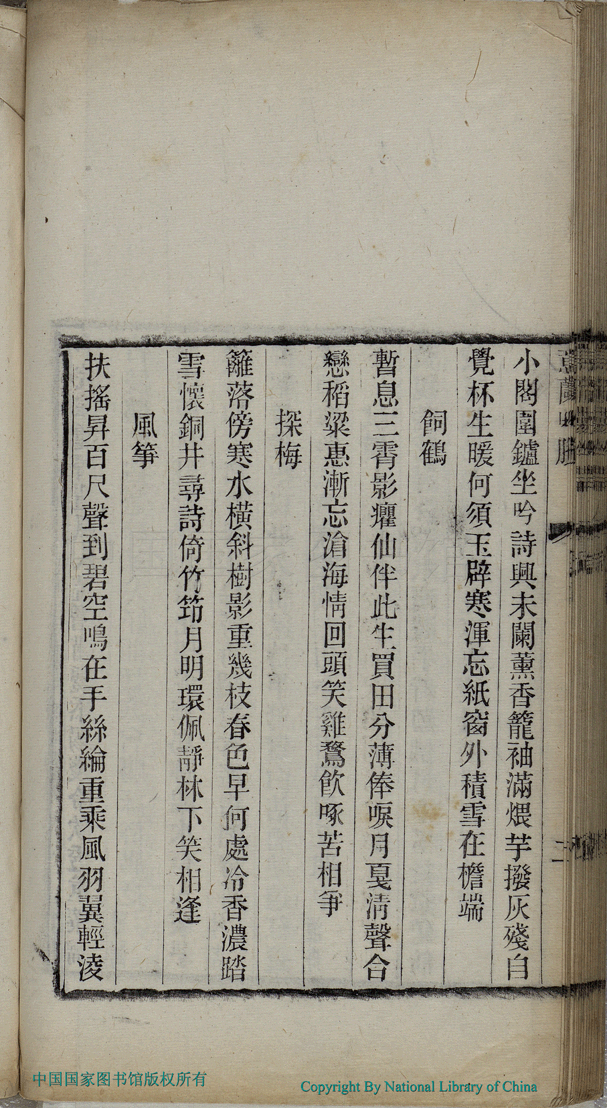 二
小閣圍鑪坐吟詩興未闌薰香籠袖滿煨芋撥灰殘自
覺杯生暖何須玉辟寒渾忘紙窗外積雪在檐端
飼鶴
暫息三霄影癯仙伴此生買田分薄俸唳月戛淸聲合
戀稻粱惠漸忘滄海情回頭笑雞鶩飮啄苦相爭
探梅
籬落傍寒水橫斜樹影重幾枝春色早何處冷香濃踏
雪懷銅井尋詩倚竹笻月明環佩靜林下笑相逢
風箏
扶搖昇百尺聲到碧空鳴在手絲綸重乘風羽翼輕淩
中国国家图书馆版权所有
Copyright By National Library of China